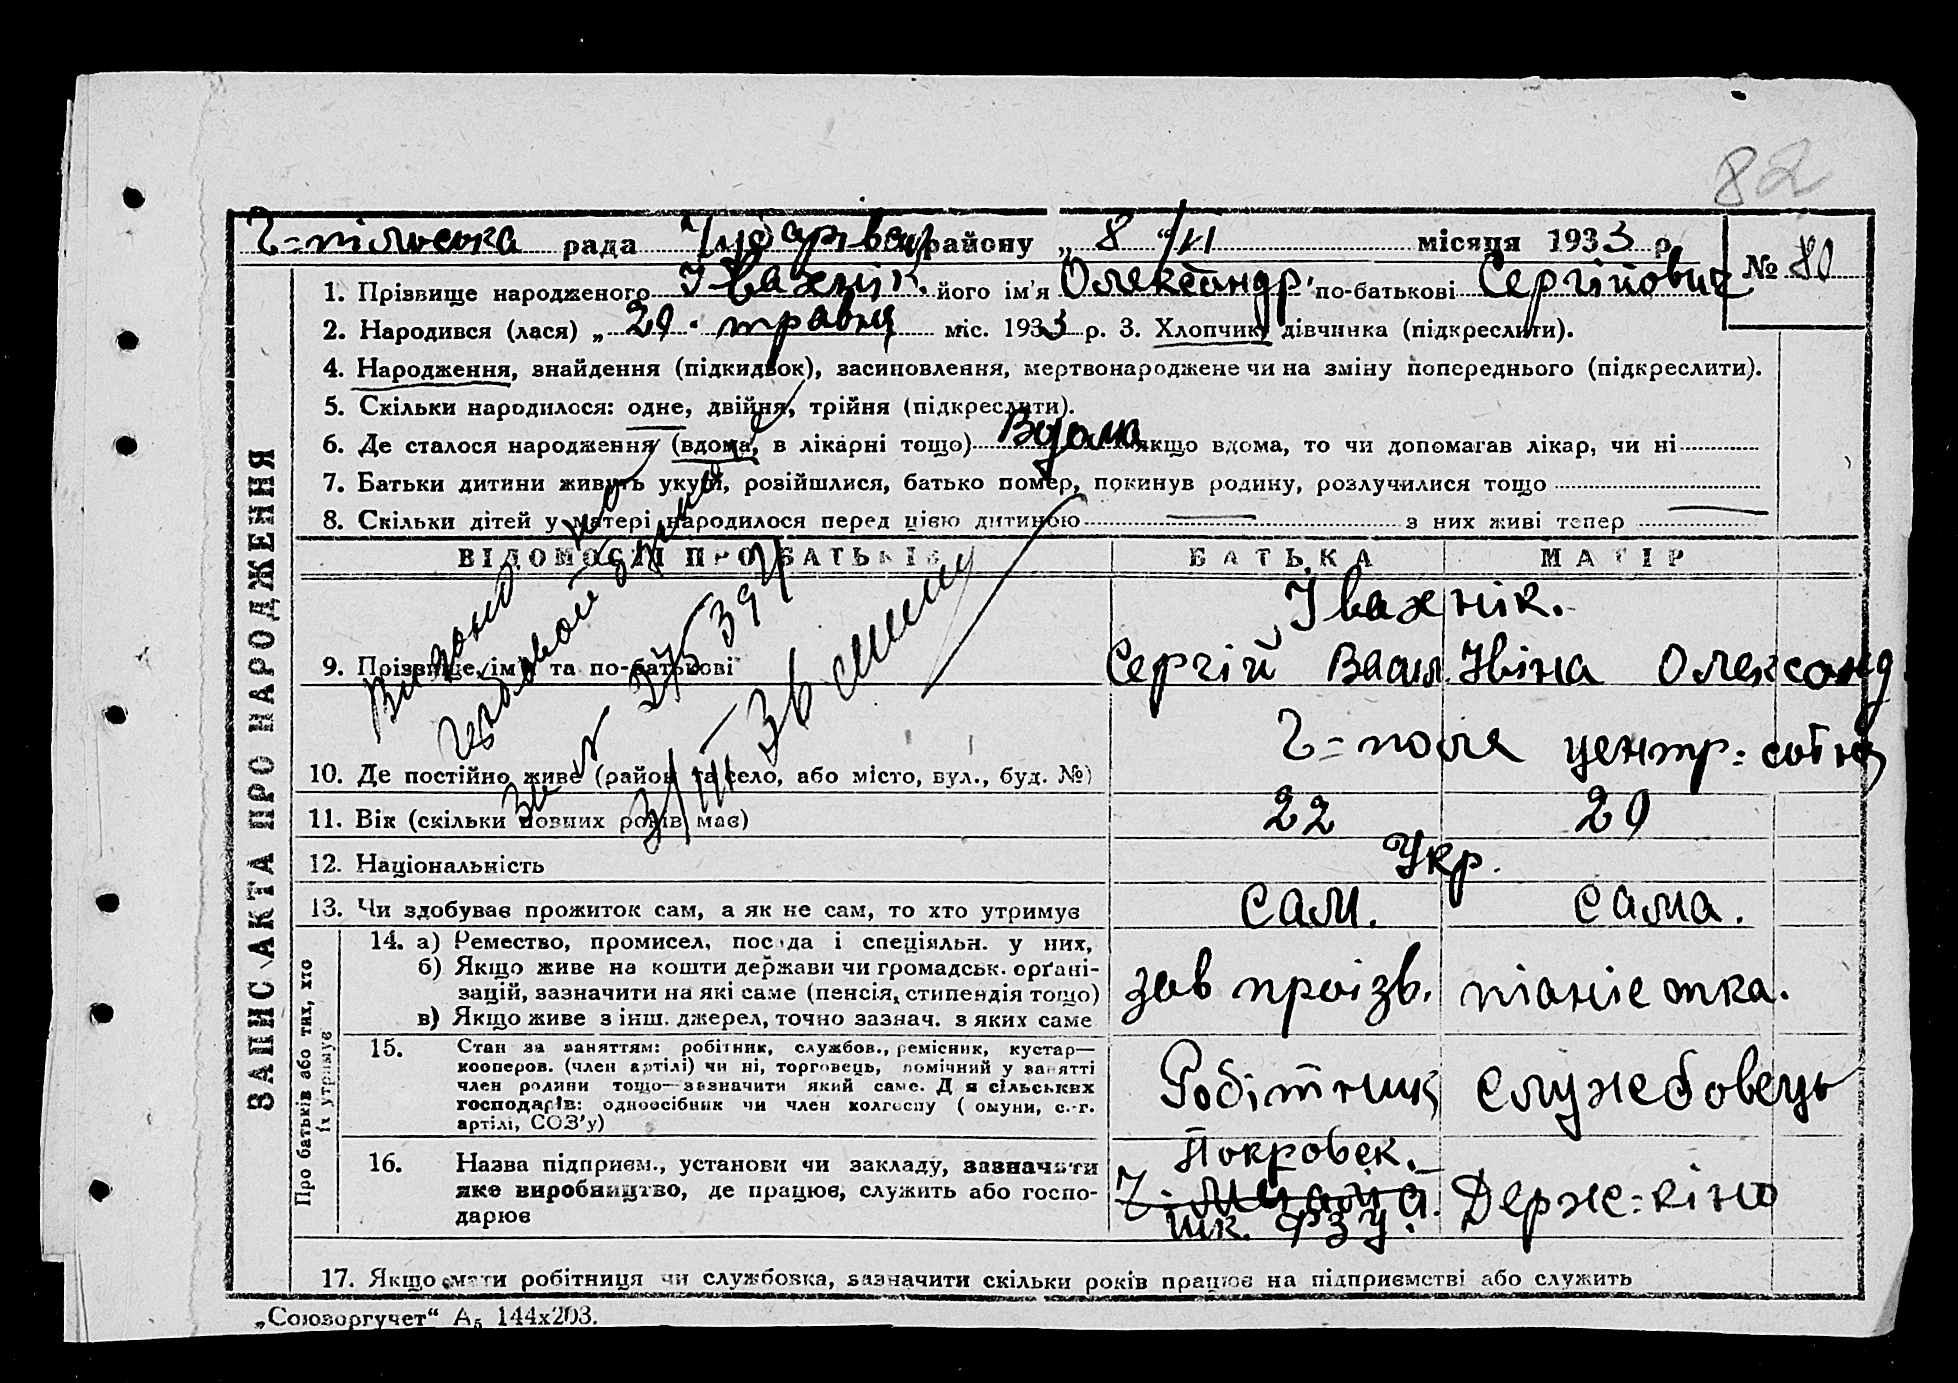 82
Г=пільська рада Чубарівськ району „ 8 “ VI місяця 1933 р.
№ 80
1. Прізвище народженого Іважнік. його ім'я Олександр по-батькові Сергійович
2. Народився (лася) „ 20 . травня міс. 1933 р. 3. Хлопчик, дівчинка (підкреслити).
4. Народження, знайдення (підкидьок), засиновлення, мертвонароджене чи на зміну попереднього (підкреслити).
5. Скільки народилося: одне, двійня, трійня (підкреслити).
6. Де сталося народження (вдома, в лікарні тощо) Вдома якщо вдома, то чи допомагав лікар, чи ні
7. Батьки дитини живуть укупі, розійшлися, батько помер, покинув родину, розлучилися тощо
8. Скільки дітей у матері народилося перед цією дитиною — з них живі тепер —
ЗАПИС АКТА ПРО НАРОДЖЕННЯ
ВІДОМОСТІ ПРО БАТЬКІВ БАТЬКА МАТІР
Іважнік.
9. Прізвище, ім'я та по-батькові Сергій Васил. Ніна Олександ
10. Де постійно живе (район та село, або місто, вул., буд. №) Г=поля центр: сотня
11. Вік (скільки повних років має) 22 20
12. Національність Укр.
13. Чи здобував прожиток сам, а як не сам, то хто утримує сам. сама.
Про батьків або тих, хто їх утримує
14. а) Ремество, промисел, посада і спеціяльн. у них,
б) Якщо живе на кошти держави чи громадськ. орґані-
зацій, зазначити на які саме (пенсія, стипендія тощо) зав проізв. піаністка.
в) Якщо живе з інш. джерел, точно зазнач. з яких саме
15. Стан за заняттям: робітник, службов., ремісник, кустар—
кооперов. (член артілі) чи ні, торговець, помічний у занятті
член родини тощо—зазначити який саме. Для сільських
господарів: одноосібник чи член колгоспу (омуни, с.-г.
артілі, СОЗ'у) Робітник службовець
Покровск.
16. Назва підприєм., установи чи закладу, зазначити
яке виробництво, де працює, служить або госпо-
дарює шк. ФЗУ. Держ:кіно
17. Якщо мати робітниця чи службовка, зазначити скільки років працює на підприємстві або служить
„Союзоргучет“ А5 144х203.